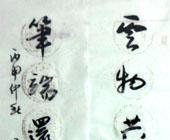 云物芸
筆端還
丙申仲秋